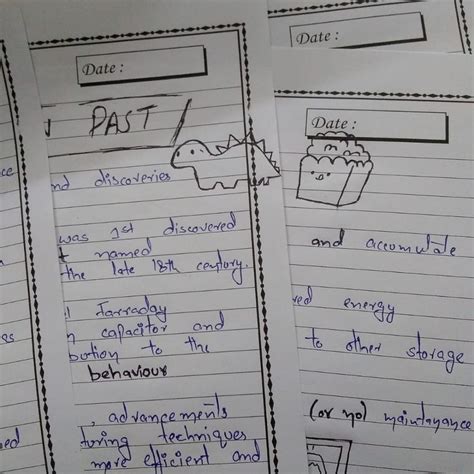 Date :
PAST
nd discoveries
was 1st discovered
named
the late 18th century.
Farraday
capacitor and
bution to the
behaviour
, advancements
turing techniques
more efficient and
Date :
Date :
and accumulate
red energy
to other storage
(or no) maintayance